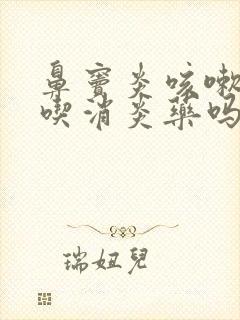 鼻窦炎咳嗽
喫消炎藥吗
瑞妞兒